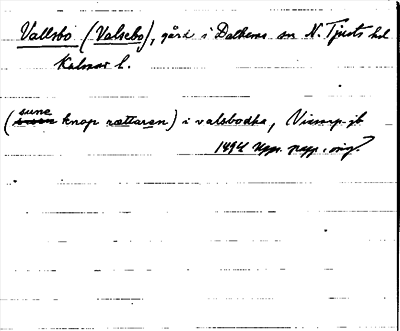 Vallsbo (Valsebo), gård i Dalhems sn N. Tjusts hd
Kalmar l.
sune
( knap rættaren) i valsbodha, Vissnp-jb
1494 Upps. papp. orig.